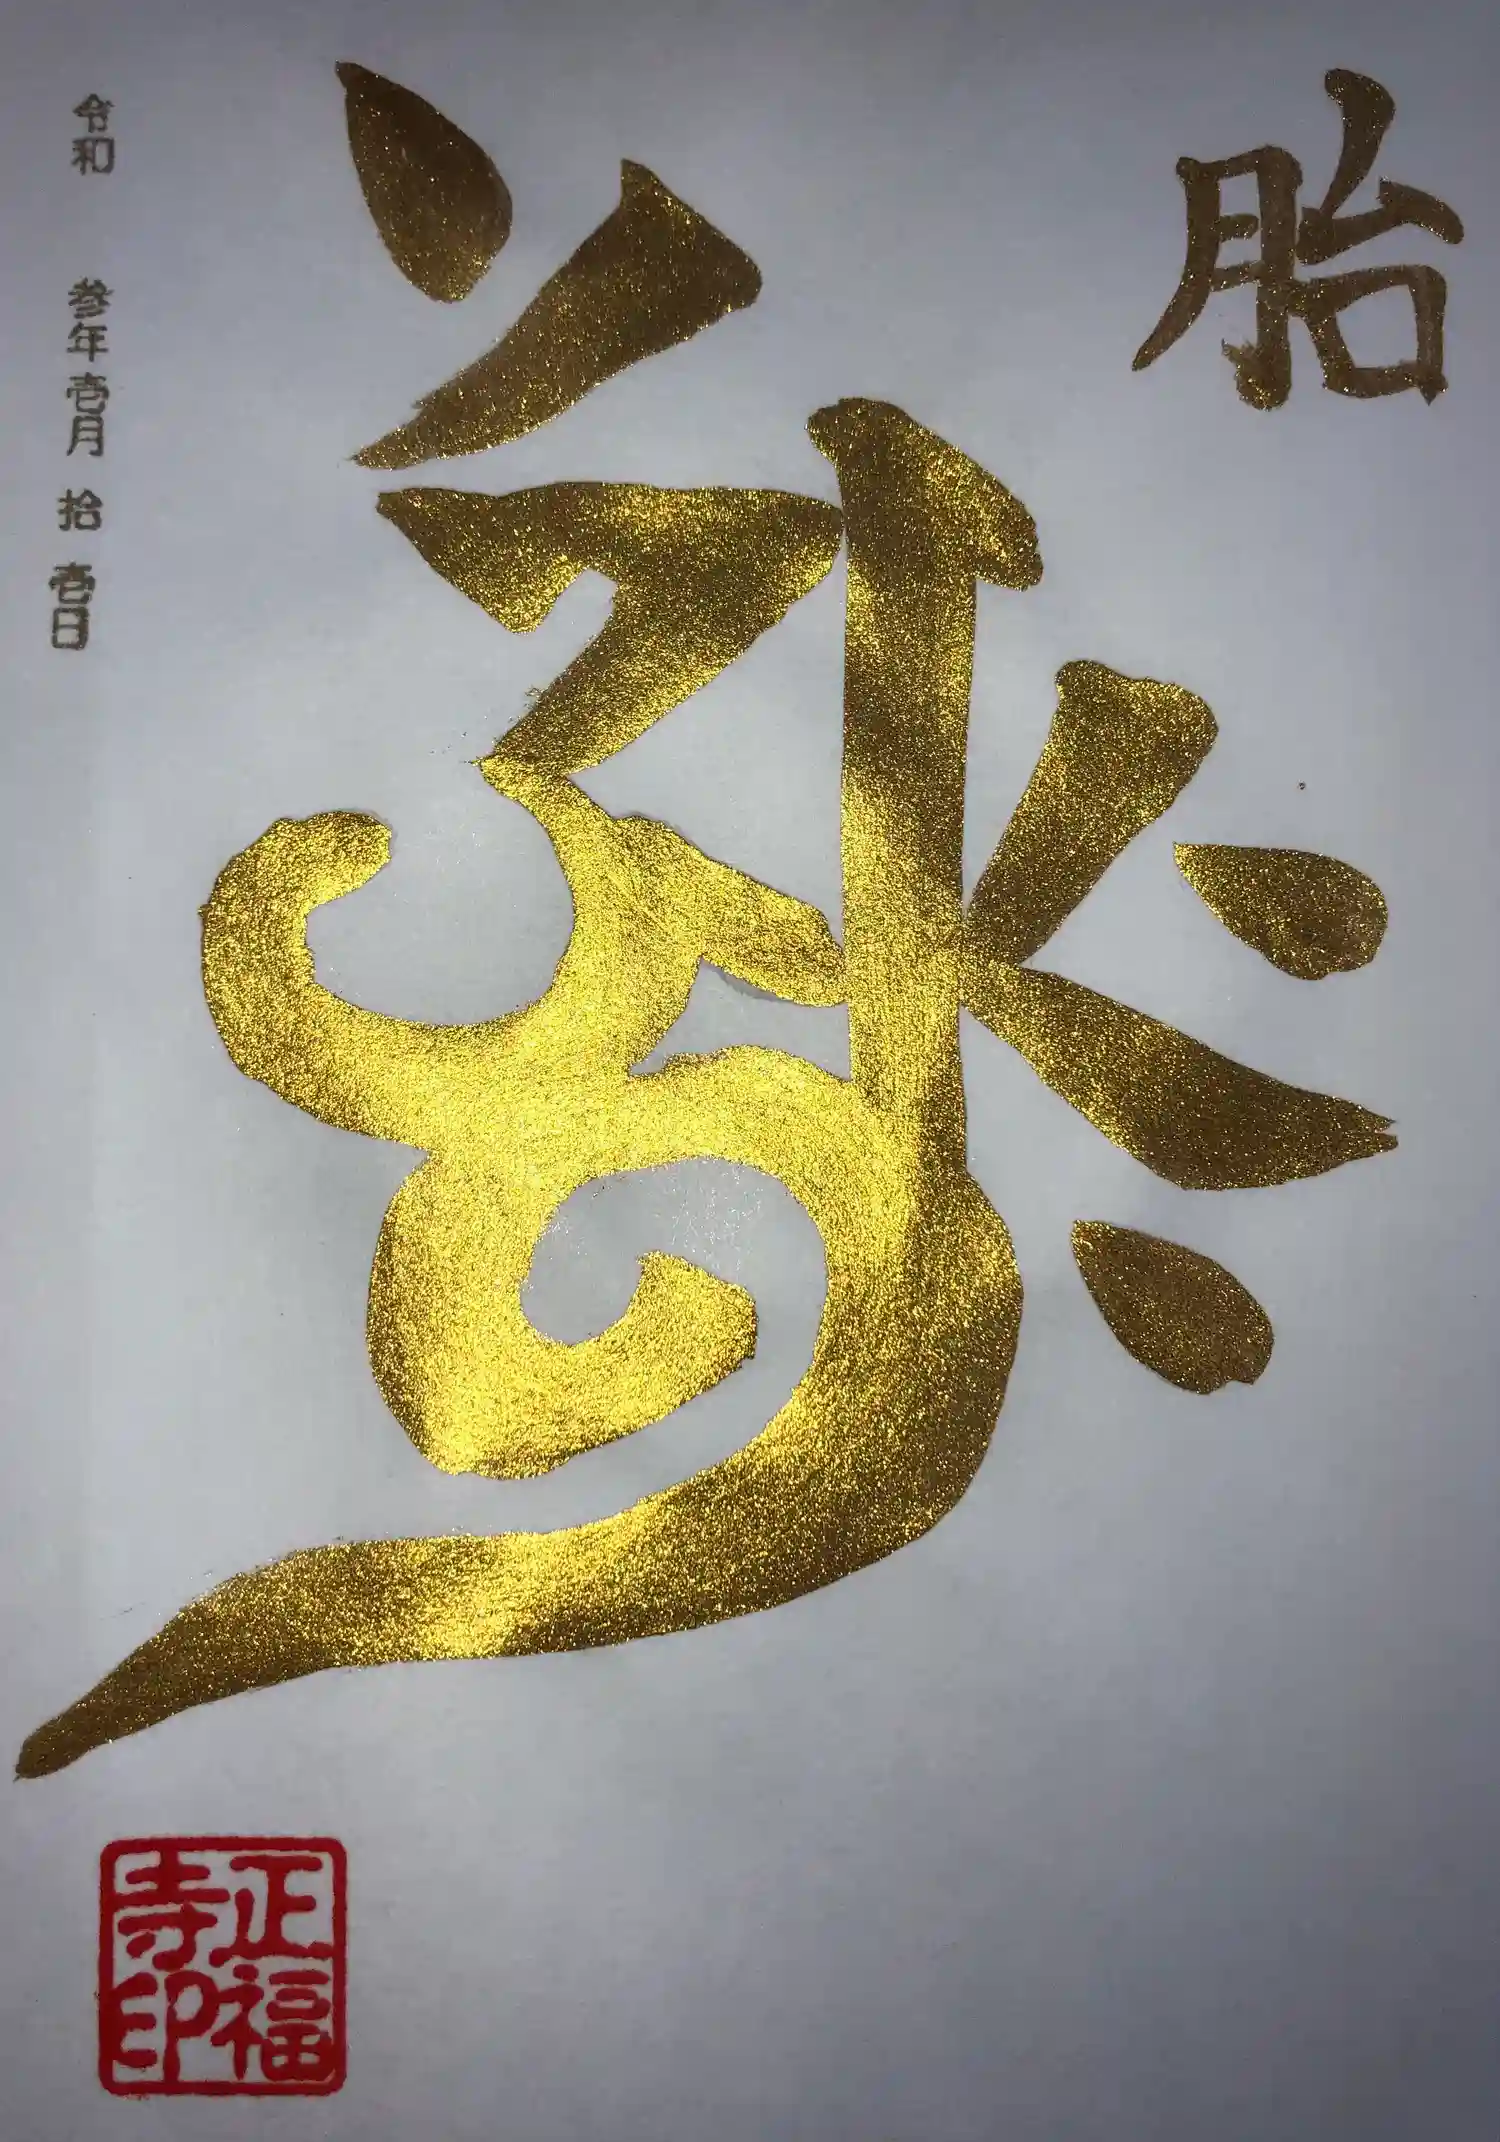 胎
令和 参年壱月 拾壱日
正福
寺印